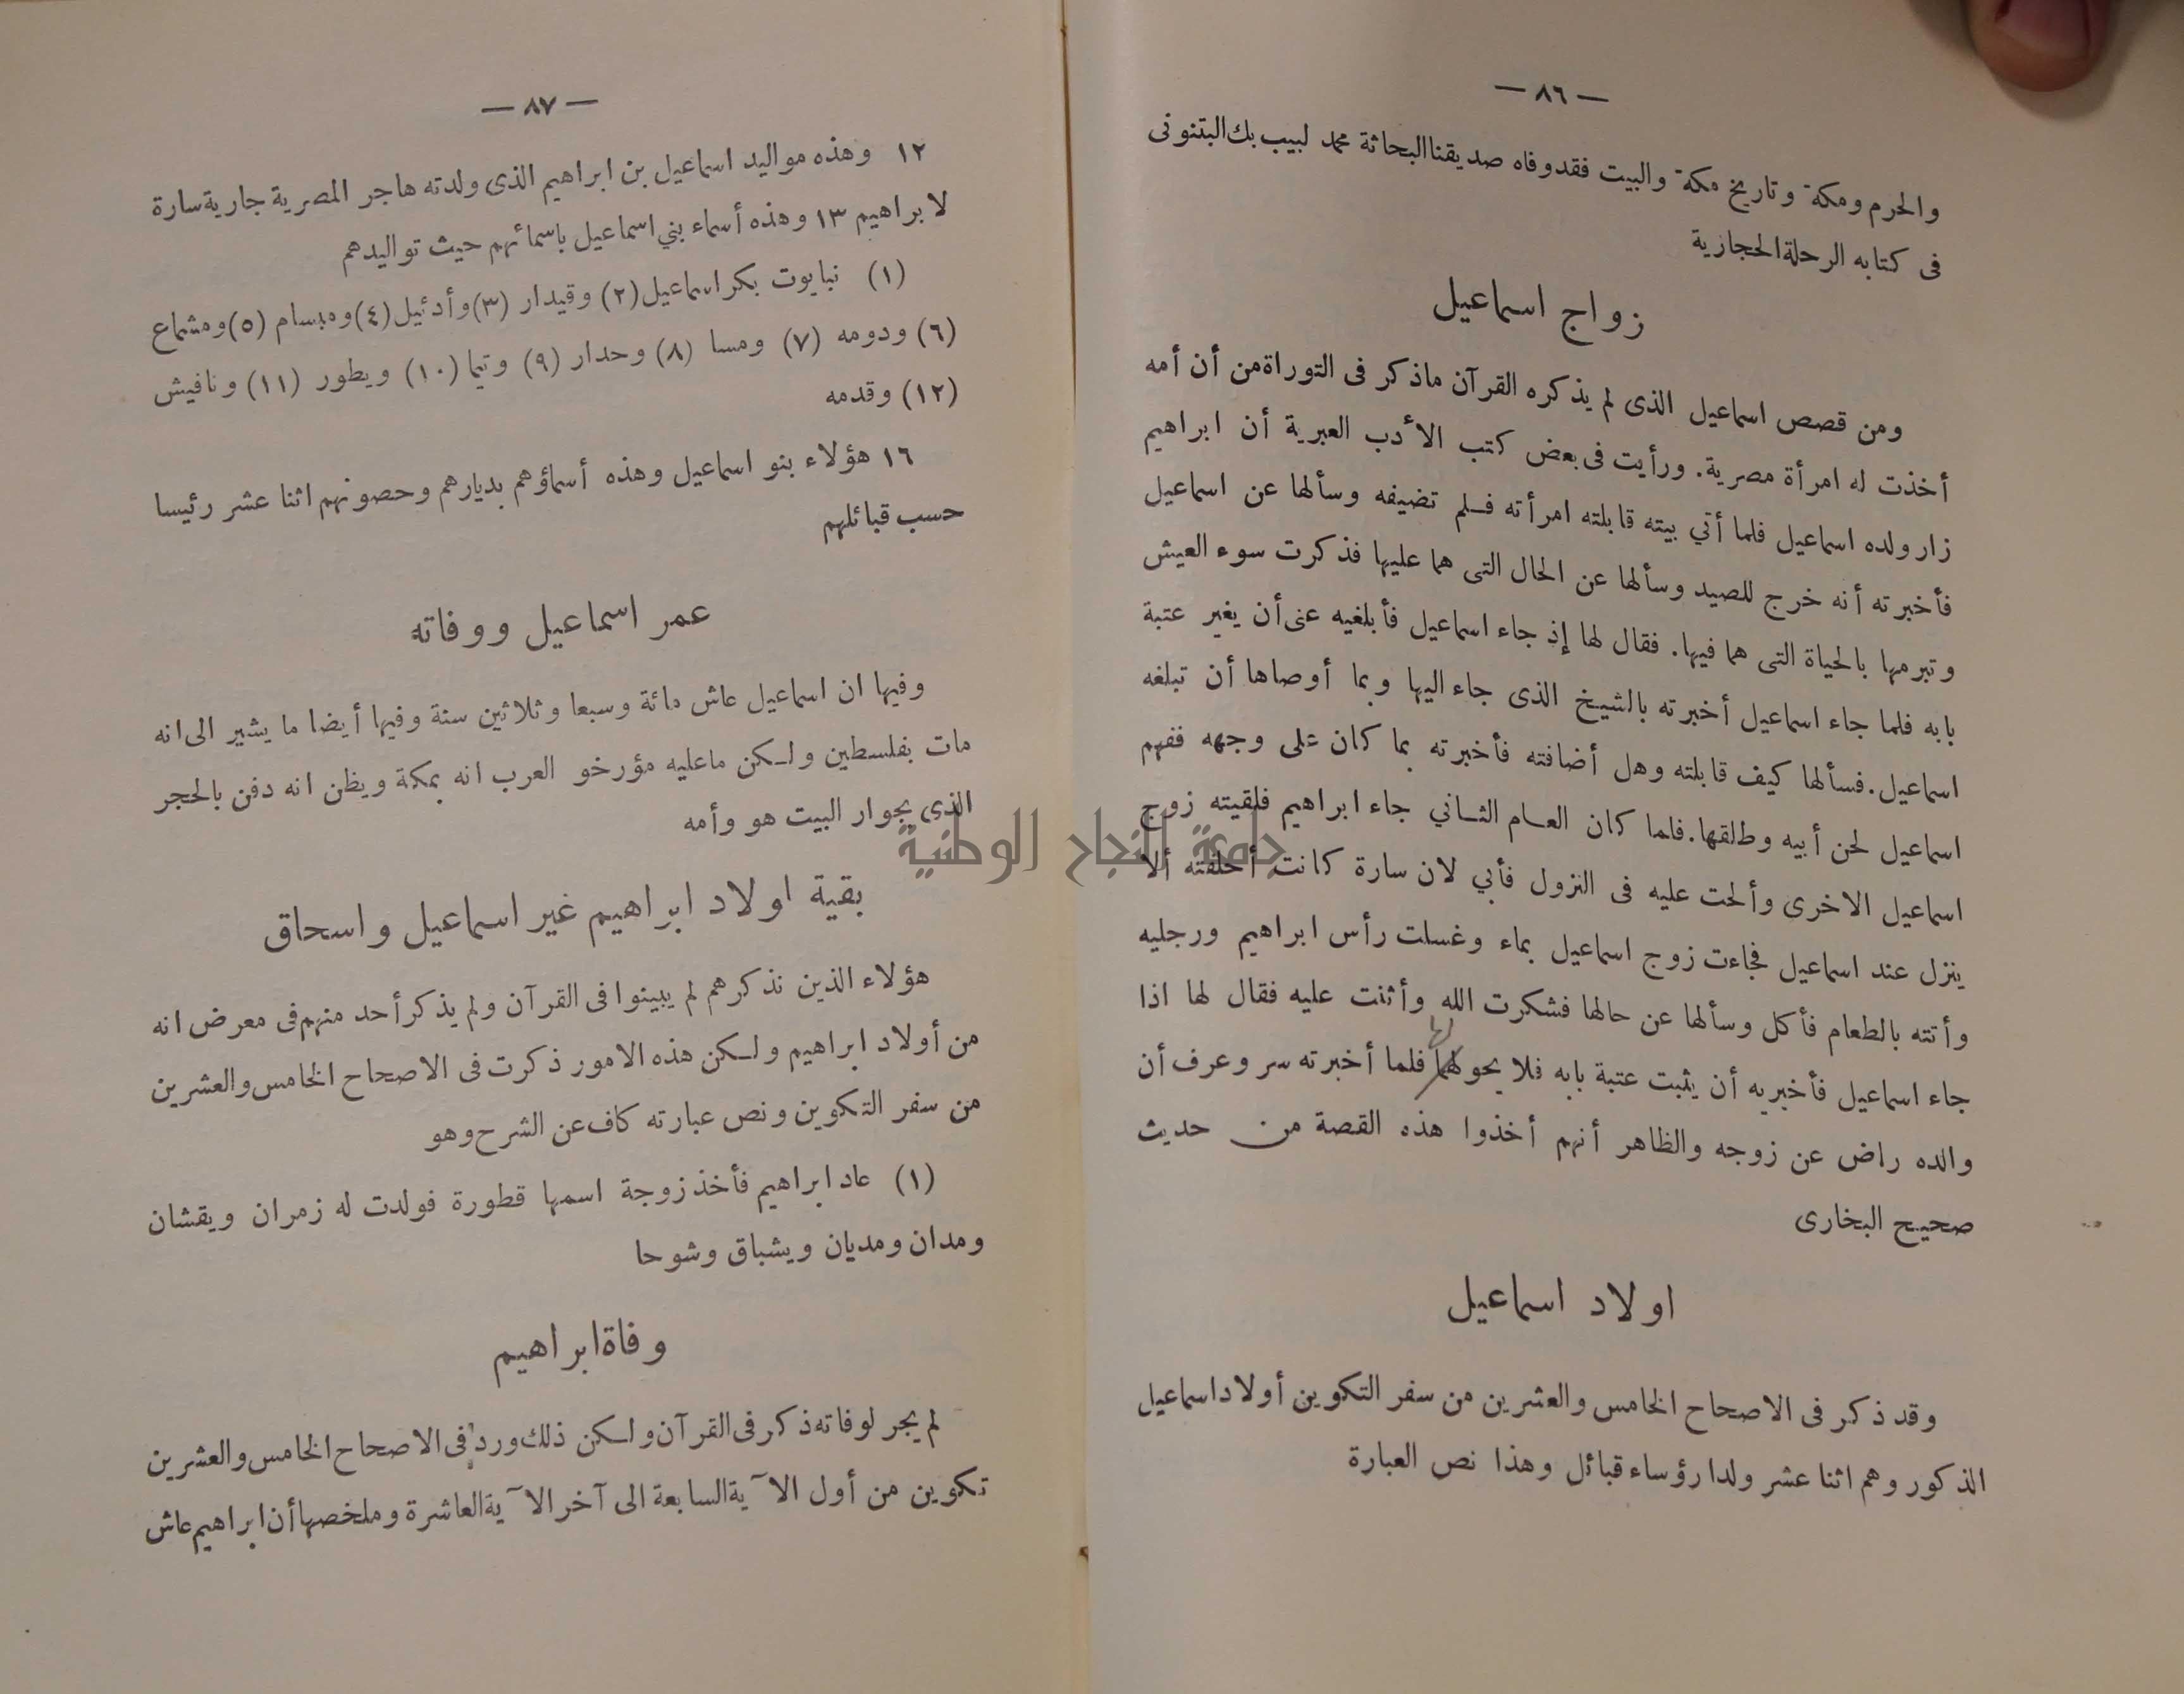 — ٨٦ —
والحرم ومكة وتاريخ مكة والبيت فقدوفاه صديقنا البحاثة محمد لبيب بك البتنونى
فى كتابه الرحلة الحجازية
زواج اسماعيل
ومن قصص اسماعيل الذى لم يذكره القرآن ماذكر فى التوراة من أن أمه
أخذت له امرأة مصرية. ورأيت فى بعض كتب الأدب العبرية أن ابراهيم
زار ولده اسماعيل فلما أتي بيته قابلته امرأته فلم تضيفه وسألها عن اسماعيل
فأخبرته أنه خرج للصيد وسألها عن الحال التى هما عليها فذكرت سوء العيش
وتبرمها بالحياة التى هما فيها. فقال لها إذ جاء اسماعيل فأبلغيه عنى أن يغير عتبة
بابه فلما جاء اسماعيل أخبرته بالشيخ الذى جاء اليها وبما أوصاها أن تبلغه
اسماعيل. فسألها كيف قابلته وهل أضافته فأخبرته بما كان على وجهه ففهم
اسماعيل لحن أبيه وطلقها. فلما كان العام الثانى جاء ابراهيم فلقيته زوج
اسماعيل الاخرى وألحت عليه فى النزول فأبي لان سارة كانت أحلفته ألا
ينزل عند اسماعيل فجاءت زوج اسماعيل بماء وغسلت رأس ابراهيم ورجليه
وأتته بالطعام فأكل وسألها عن حالها فشكرت الله وأثنت عليه فقال لها اذا
لها
جاء اسماعيل فأخبريه أن يثبت عتبة بابه فلا يحولهما فلما أخبرته سر وعرف أن
والده راض عن زوجه والظاهر أنهم أخذوا هذه القصة من حديث
صحيح البخارى
اولاد اسماعيل
وقد ذكر فى الاصحاح الخامس والعشرين من سفر التكوين أولاد اسماعيل
الذكور وهم اثنا عشر ولدا رؤساء قبائل وهذا نص العبارة
— ٨٧ —
١٢ وهذه مواليد اسماعيل بن ابراهيم الذى ولدته هاجر المصرية جارية سارة
لابراهيم ١٣ وهذه أسماء بني اسماعيل باسمائهم حيث تواليدهم
(١) نبايوت بكر اسماعيل (٢) وقيدار (٣) وأدئيل (٤) ومبسام (٥) ومشماع
(٦) ودومه (٧) ومسا (٨) وحدار (٩) وتيما (١٠) ويطور (١١) ونافيش
(١٢) وقدمه
١٦ هؤلاء بنو اسماعيل وهذه أسماؤهم بديارهم وحصونهم اثنا عشر رئيسا
حسب قبائلهم
عمر اسماعيل ووفاته
وفيها ان اسماعيل عاش مائة وسبعا وثلاثين سنة وفيها أيضا ما يشير الى انه
مات بفلسطين ولكن ماعليه مؤرخو العرب انه بمكة ويظن انه دفن بالحجر
الذى بجوار البيت هو وأمه
جامعة النجاح الوطنية
بقية اولاد ابراهيم غير اسماعيل واسحاق
هؤلاء الذين نذكرهم لم يبينوا فى القرآن ولم يذكر أحد منهم فى معرض انه
من أولاد ابراهيم ولكن هذه الامور ذكرت فى الاصحاح الخامس والعشرين
من سفر التكوين ونص عبارته كاف عن الشرح وهو
(١) عاد ابراهيم فأخذ زوجة اسمها قطورة فولدت له زمران ويقشان
ومدان ومديان ويشباق وشوحا
وفاة ابراهيم
لم يجر لوفاته ذكر فى القرآن ولكن ذلك ورد فى الاصحاح الخامس والعشرين
تكوين من أول الآية السابعة الى آخر الآية العاشرة وملخصها أن ابراهيم عاش